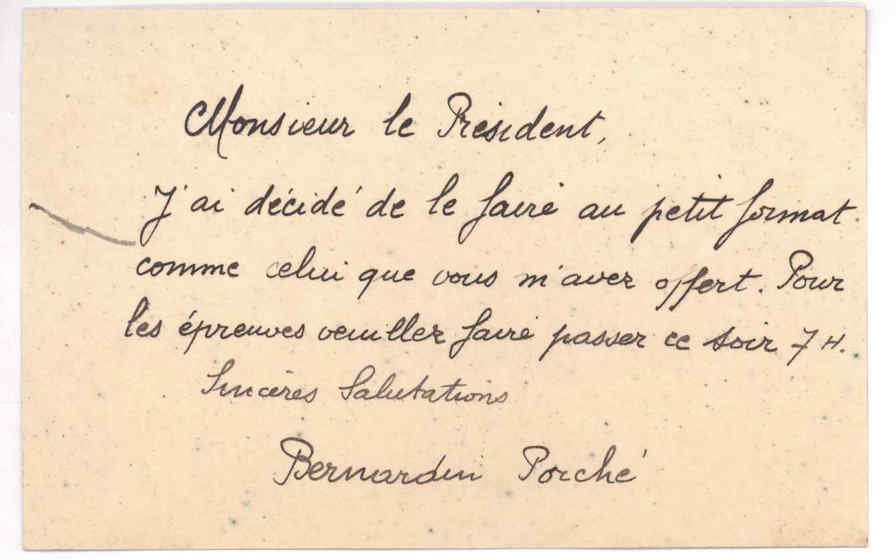 Monsieur le Président,
J'ai décidé de le faire au petit format
comme celui que vous m'avez offert. Pour
les épreuves veuillez faire passer ce soir 7 H.
Sincères Salutations
Bernardin Porché